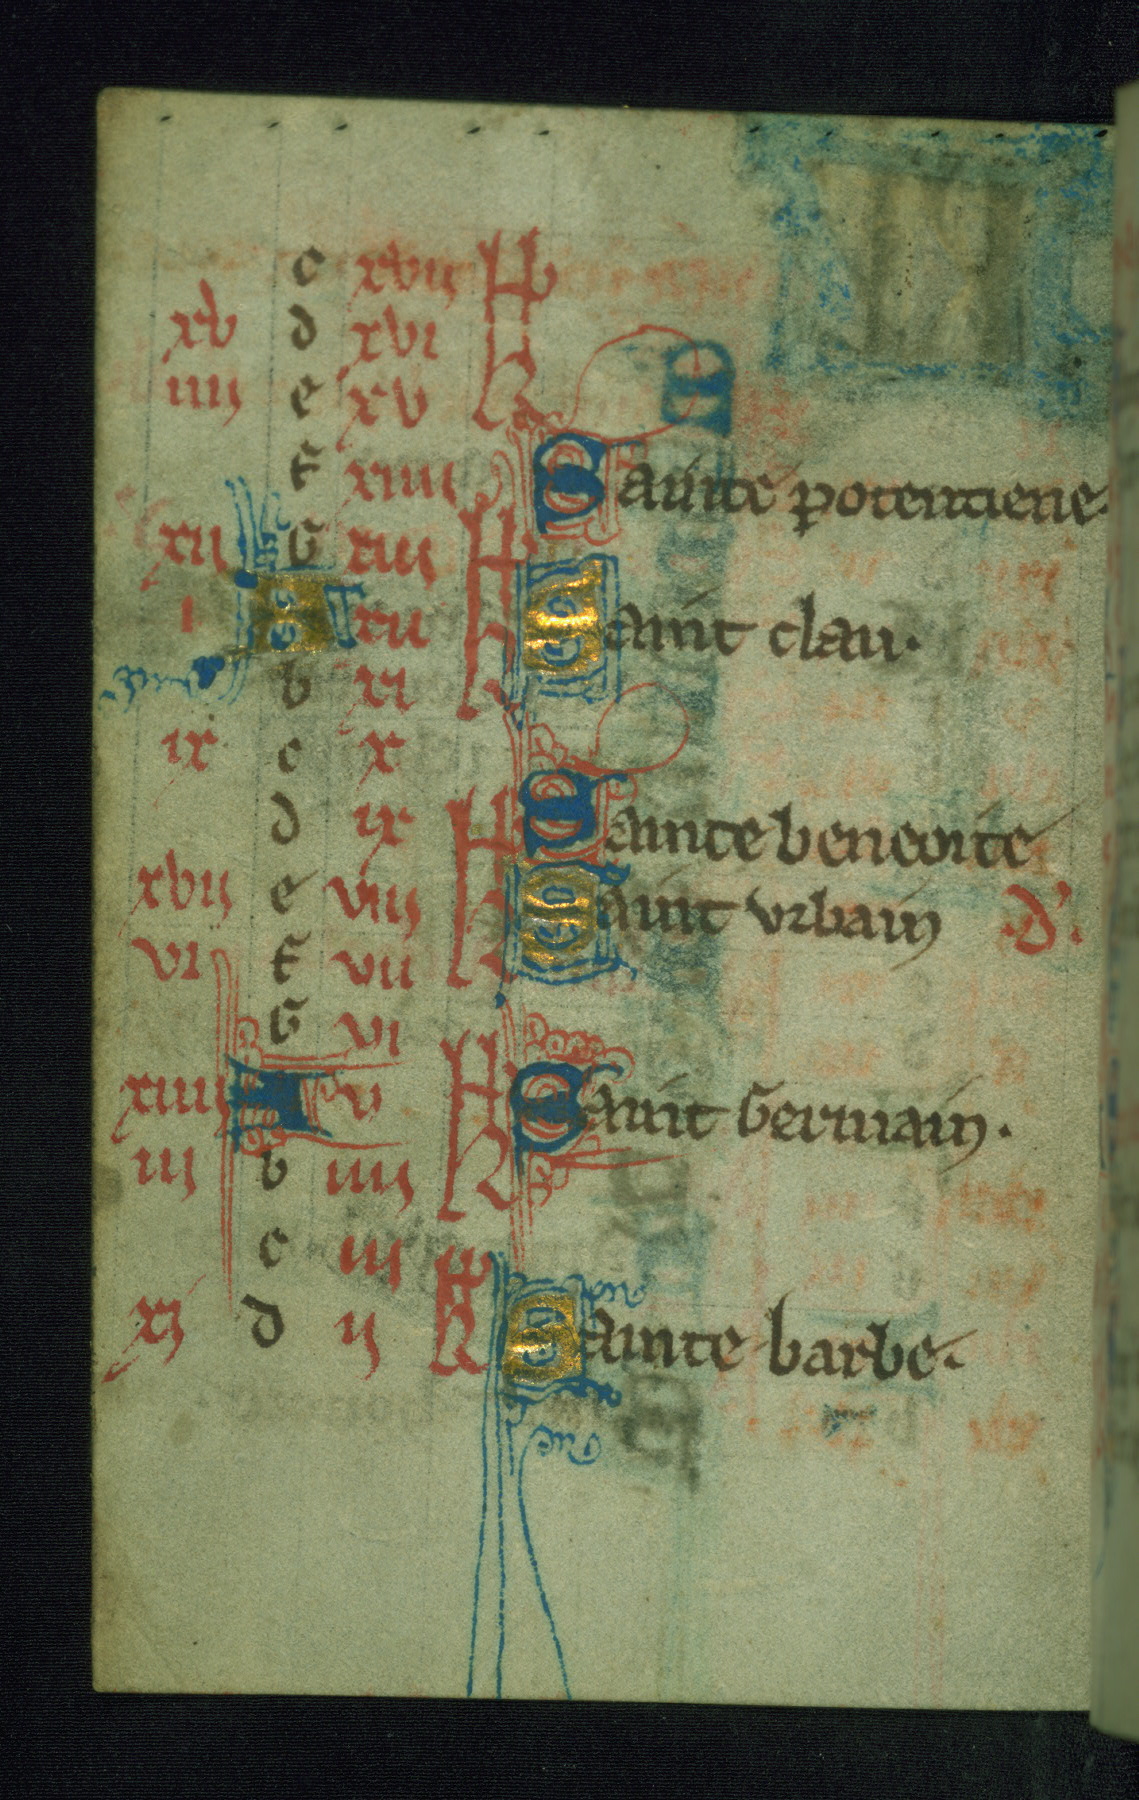 c xvii kl
xv d xvi
iiii e xv
f xiiii Sainte potentiene.
xii G xiii kl
i A xii Saint clau.
b xi
ix c x
d ix kl Sainte beneoite
xvii e viii Saint vrbain .d'.
vi f vii
G vi
xiiii A v kl Saint Germain.
iii b iiii
c iii kl
xi d ii Sainte barbe.